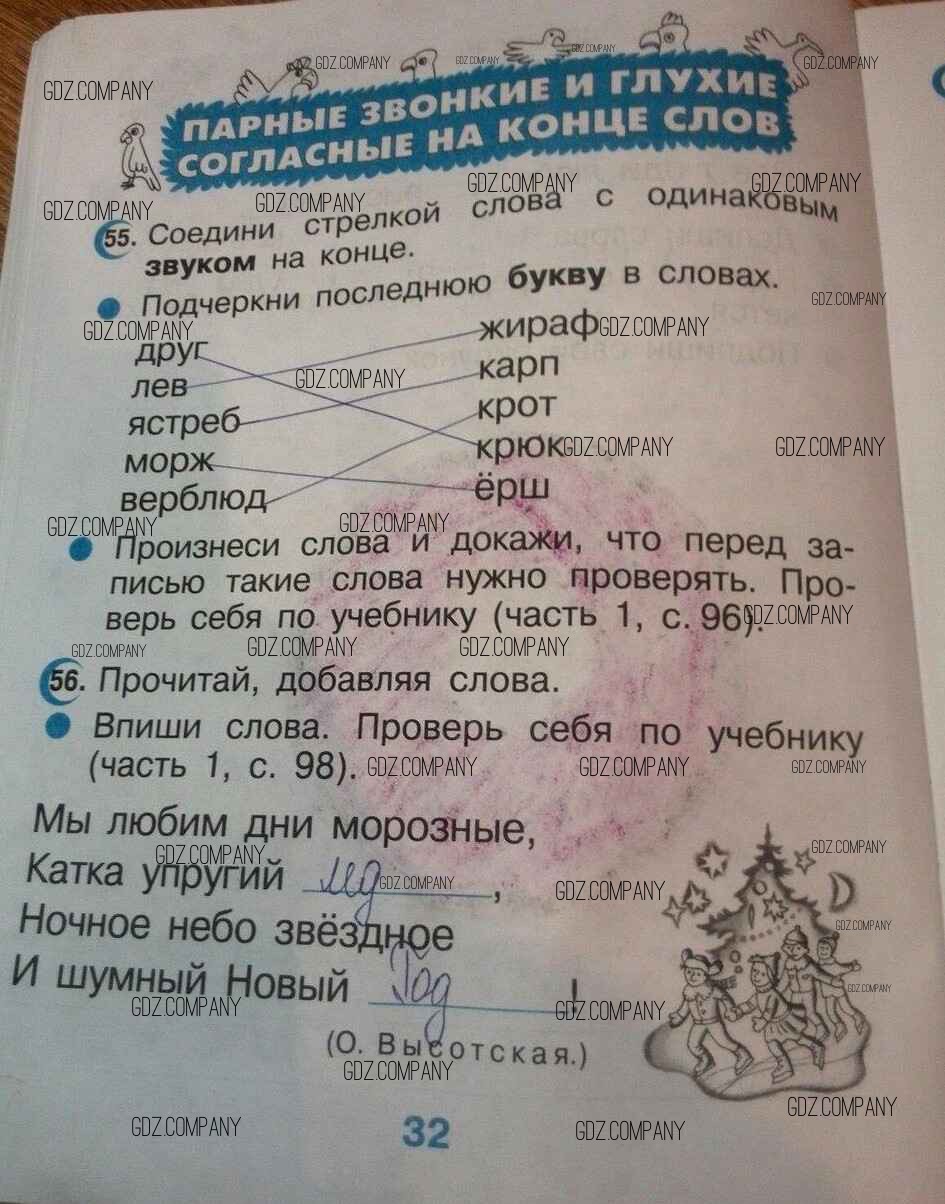 ПАРНЫЕ ЗВОНКИЕ И ГЛУХИЕ
СОГЛАСНЫЕ НА КОНЦЕ СЛОВ
55. Соедини стрелкой слова с одинаковым
звуком на конце.
Подчеркни последнюю букву в словах.
друг жираф
лев карп
ястреб крот
морж крюк
верблюд ёрш
Произнеси слова и докажи, что перед за-
писью такие слова нужно проверять. Про-
верь себя по учебнику (часть 1, с. 96).
56. Прочитай, добавляя слова.
Впиши слова. Проверь себя по учебнику
(часть 1, с. 98).
Мы любим дни морозные,
Катка упругий лёд,
Ночное небо звёздное
И шумный Новый Год!
(О. Высотская.)
32
GDZ.COMPANY